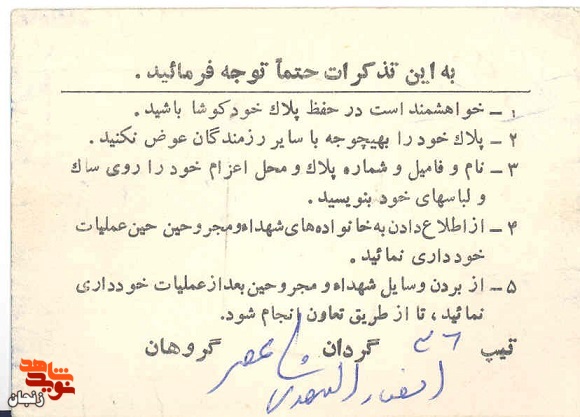 به این تذکرات حتماً توجه فرمائید.
۱ـ خواهشمند است در حفظ پلاك خود کوشا باشید.
۲ـ پلاك خود را بهیچوجه با سایر رزمندگان عوض نکنید.
۳ـ نام و فامیل و شماره پلاك و محل اعزام خود را روی ساك
و لباسهای خود بنویسید.
۴ـ از اطلاع دادن به خانواده‌های شهداء و مجروحین حین عملیات
خودداری نمائید.
۵ـ از بردن وسایل شهداء و مجروحین بعد از عملیات خودداری
نمائید، تا از طریق تعاون انجام شود.
تیپ ۳۶ گردان ولیعصر گروهان
انصار المهدی
شاهد
نوید
زنجان